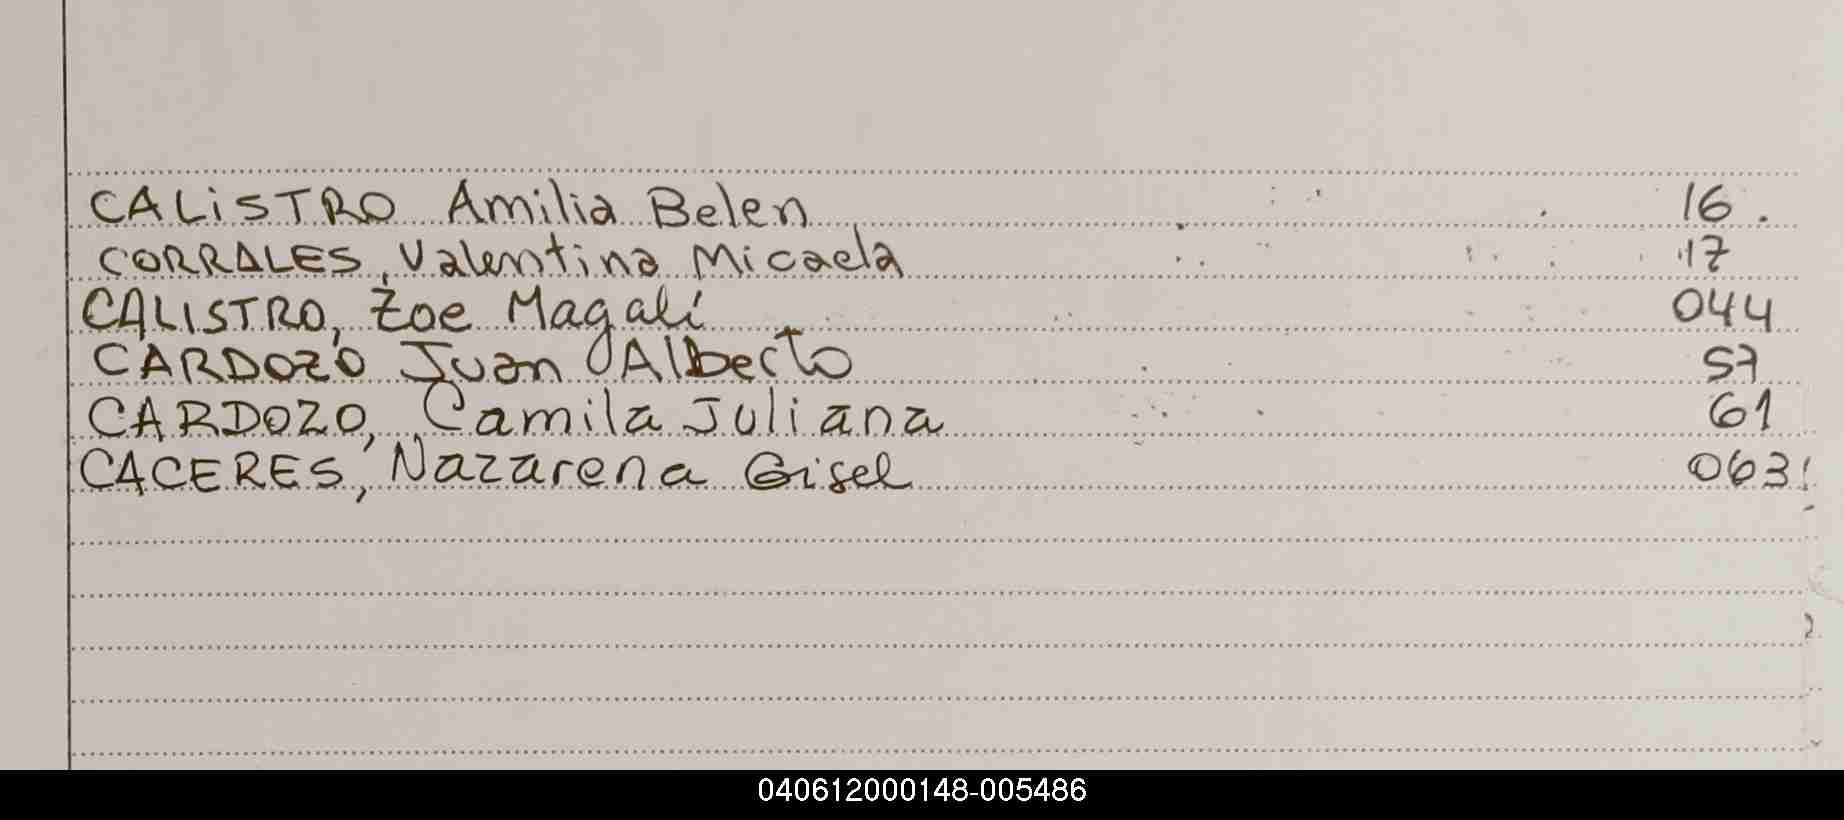 CALISTRO Amilia Belen 16.
CORRALES, Valentina Micaela 17
CALISTRO, Zoe Magalí 044
CARDOZO Juan Alberto 57
CARDOZO, Camila Juliana 61
CACERES, Nazarena Gisel 063
040612000148-005486